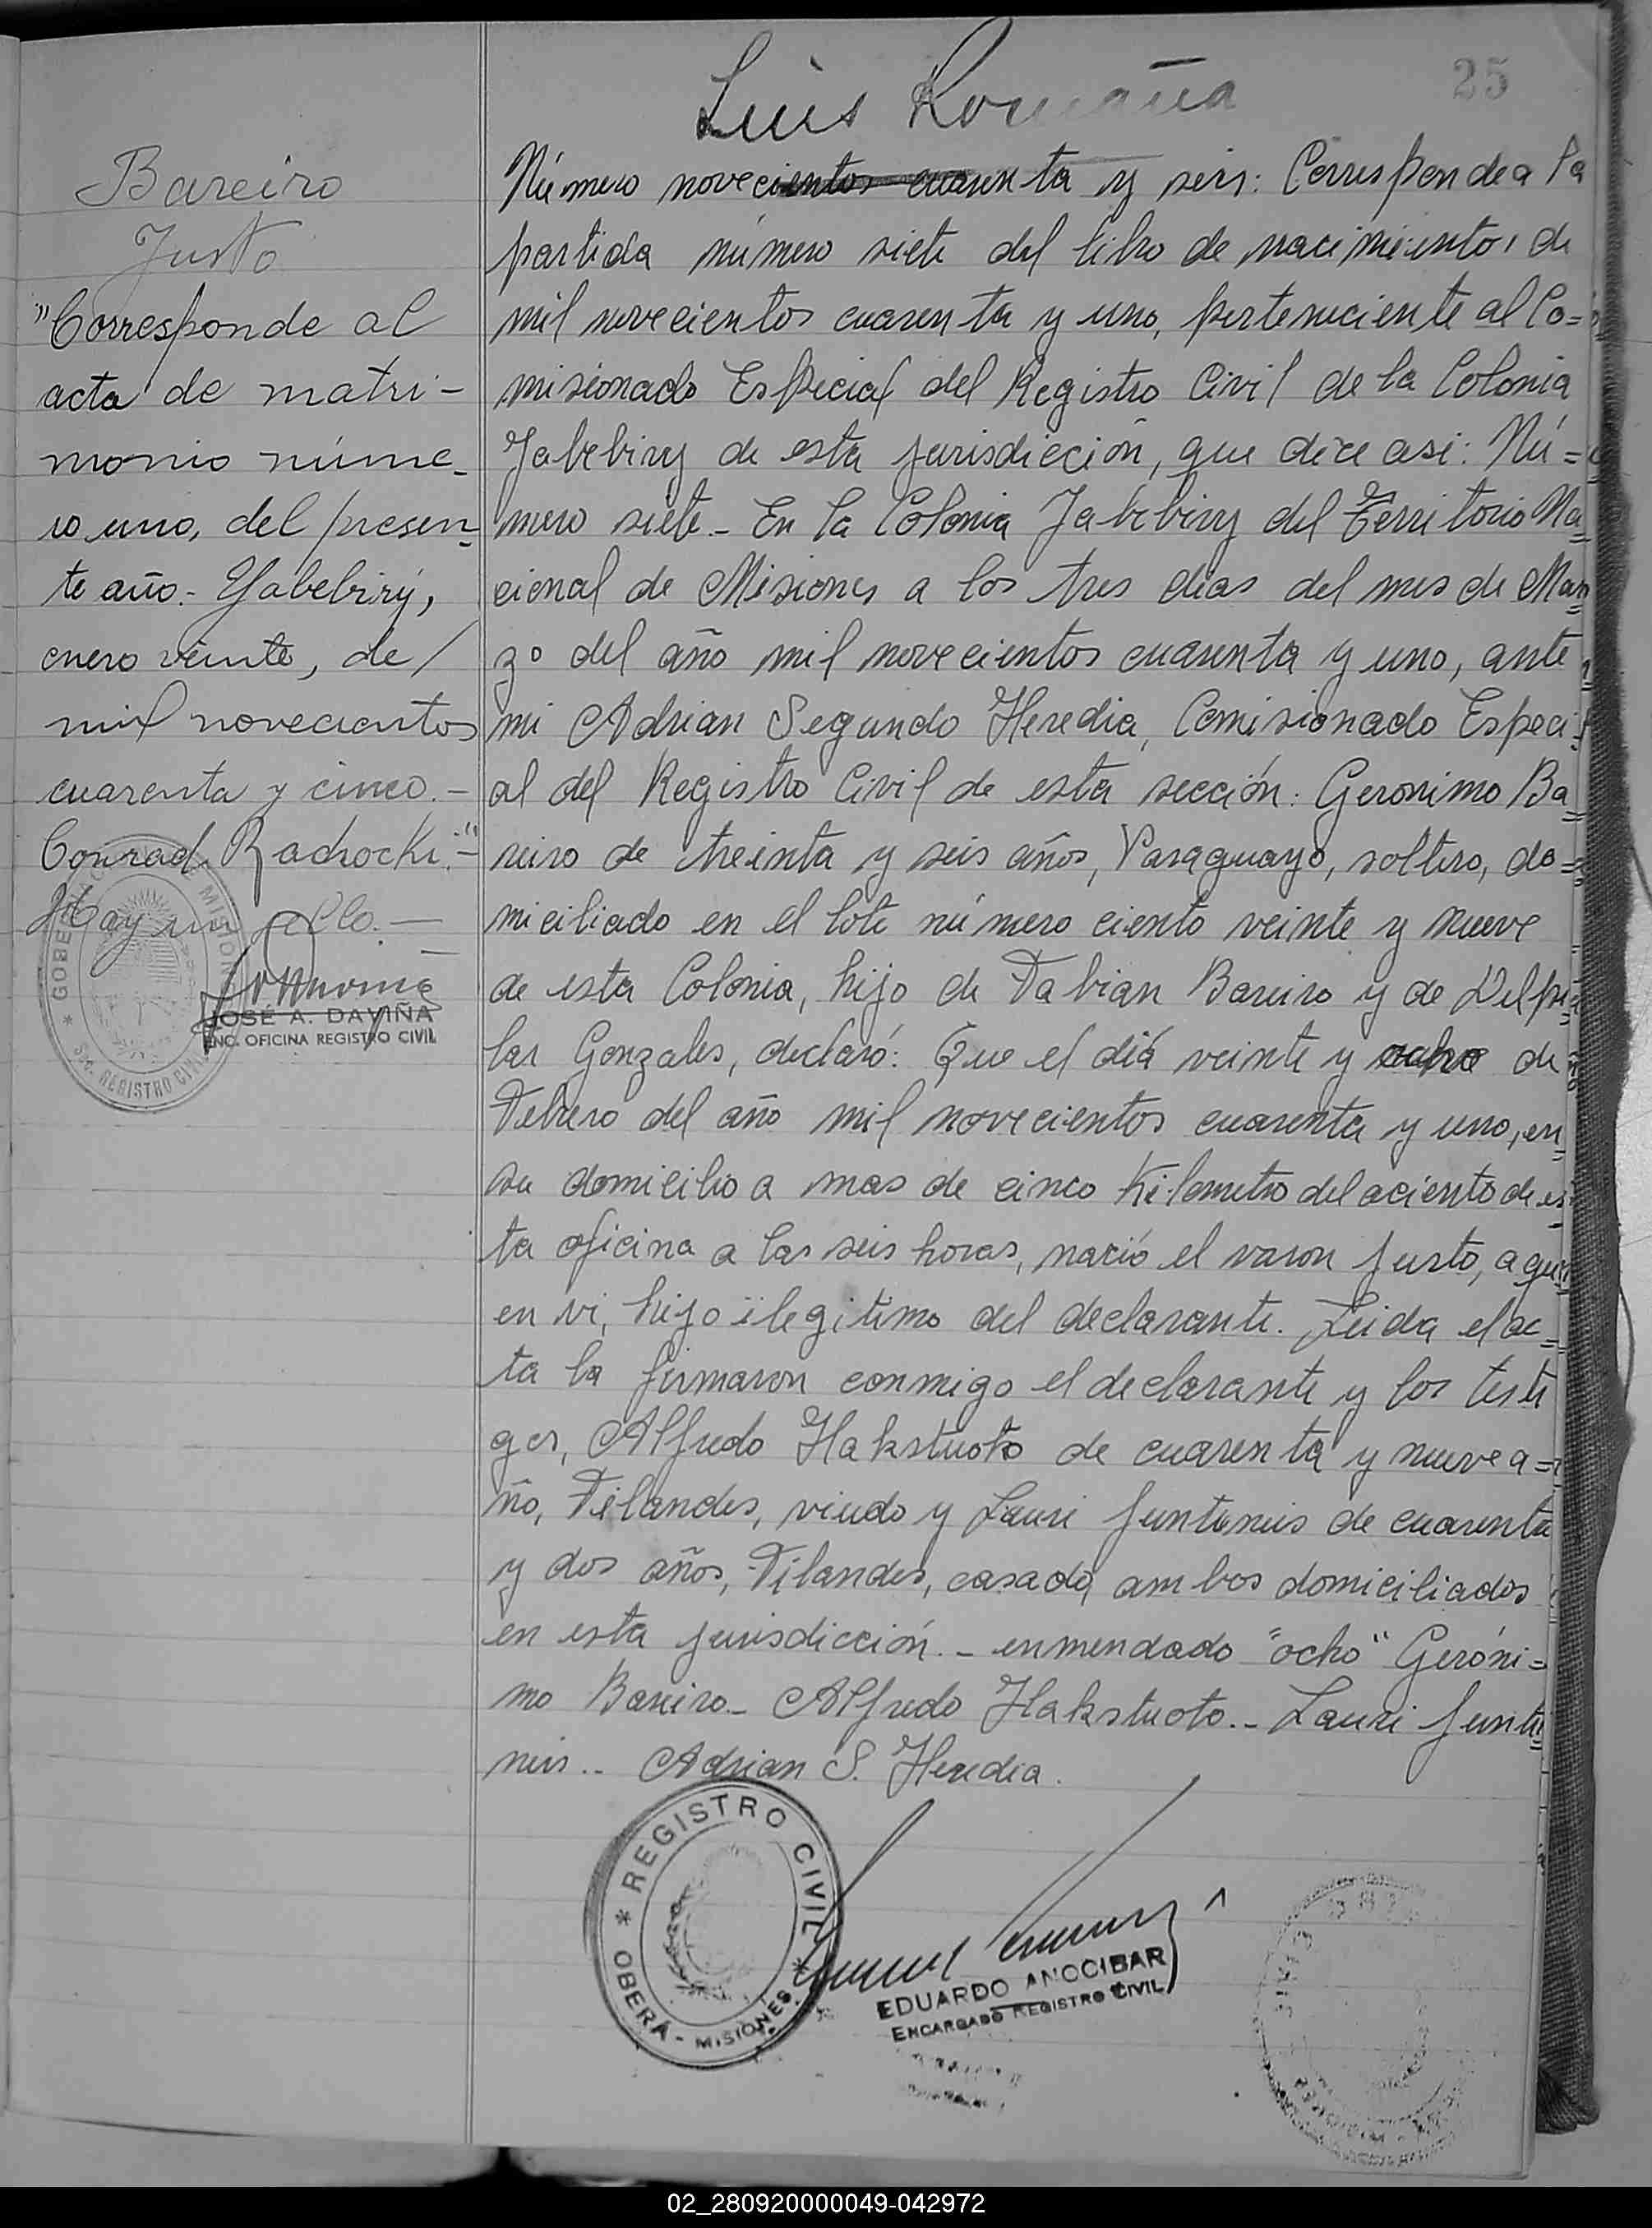 25
Luis Romaña
Bareiro
Justo
"Corresponde al
acta de matri-
monio núme-
ro uno, del presen-
te año.- Yabebirý,
enero veinte, de /
mil novecientos
cuarenta y cinco.-
Conrad. Rachocki."-
Hay un sello.-
GOBERNACION DE MISIONES
JOSÉ A. DAVIÑA
ENC. OFICINA REGISTRO CIVIL
REGISTRO CIVIL
Número novecientos cuarenta y seis: Corresponde a la
partida número siete del libro de nacimientos de
mil novecientos cuarenta y uno, perteneciente al Co=
misionado Especial del Registro Civil de la Colonia
Jabebiry de esta jurisdicción, que dice asi: Nú=
mero siete.- En la Colonia Jabebiry del Territorio Na=
cional de Misiones a los tres dias del mes de Mar=
zo del año mil novecientos cuarenta y uno, ante
mi Adrian Segundo Heredia, Comisionado Especi=
al del Registro Civil de esta sección: Geronimo Ba=
reiro de treinta y seis años, Paraguayo, soltero, do=
miciliado en el lote número ciento veinte y nueve
de esta Colonia, hijo de Fabian Bareiro y de Delpi=
lar Gonzales, declaró: Que el diá veinte y ocho de
Febrero del año mil novecientos cuarenta y uno, en
su domicilio a mas de cinco Kilometro del aciento de es=
ta oficina a las seis horas, nació el varon Justo, a qui=
en vi, hijo ilegitimo del declarante. Leida el ac=
ta la firmaron conmigo el declarante y los testi
gos, Alfredo Hakstuoto de cuarenta y nueve a=
ño, Filandes, viudo y Lauri Juntuneis de cuarenta
y dos años, Filandes, casado, ambos domiciliados
en esta jurisdicción.- enmendado "ocho" Geróni=
mo Bareiro.- Alfredo Hakstuoto.- Lauri Juntu=
neis.. Adrian S. Heredia.
REGISTRO CIVIL
OBERÁ - MISIONES
EDUARDO ANOCIBAR
ENCARGADO REGISTRO CIVIL
02_280920000049-042972